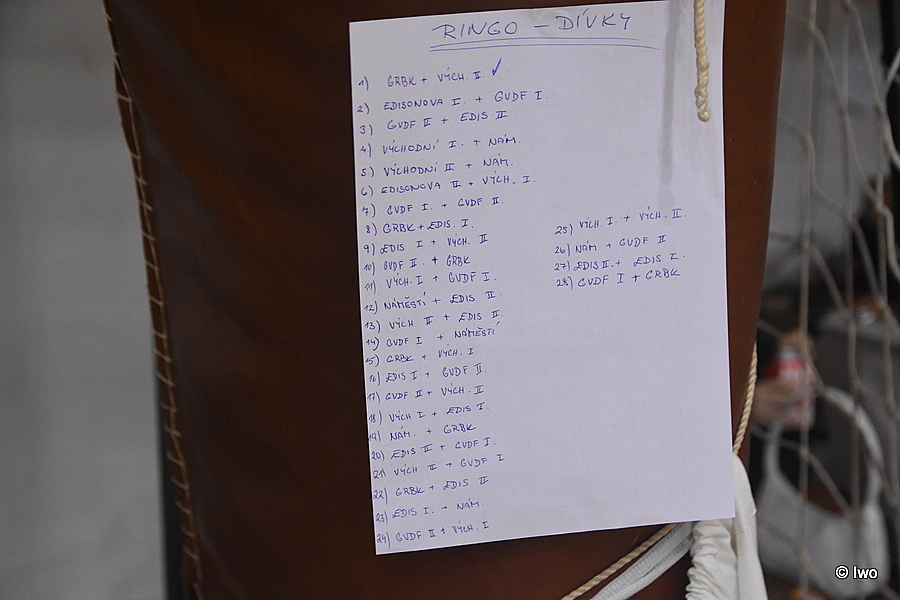 RINGO - DÍVKY
1) GRBK + VÝCH. II ✓
2) EDISONOVA I. + GVDF I.
3) GVDF II + EDIS II
4) VÝCHODNÍ I. + NÁM.
5.) VÝCHODNÍ II + NÁM.
6) EDISONOVA II + VÝCH. I.
7) GVDF I. + GVDF II.
8) GRBK + EDIS I.
9) EDIS I + VÝCH. II
10) GVDF II. + GRBK
11) VÝCH. I + GVDF I.
12) NÁMĚSTÍ + EDIS II.
13) VÝCH II. + EDIS II.
14) GVDF I + NÁMĚSTÍ
15) GRBK + VÝCH. I
16) EDIS I + GVDF II.
17) GVDF II + VÝCH. II
18) VÝCH I + EDIS I.
19) NÁM. + GRBK
20) EDIS II + GVDF I.
21) VÝCH II + GVDF I
22) GRBK + EDIS II
23) EDIS I. + NÁM.
24) GVDF II + VÝCH. I
25) VÝCH I. + VÝCH. II.
26) NÁM + GVDF II
27) EDIS II. + EDIS I.
28) GVDF I + GRBK
© Iwo